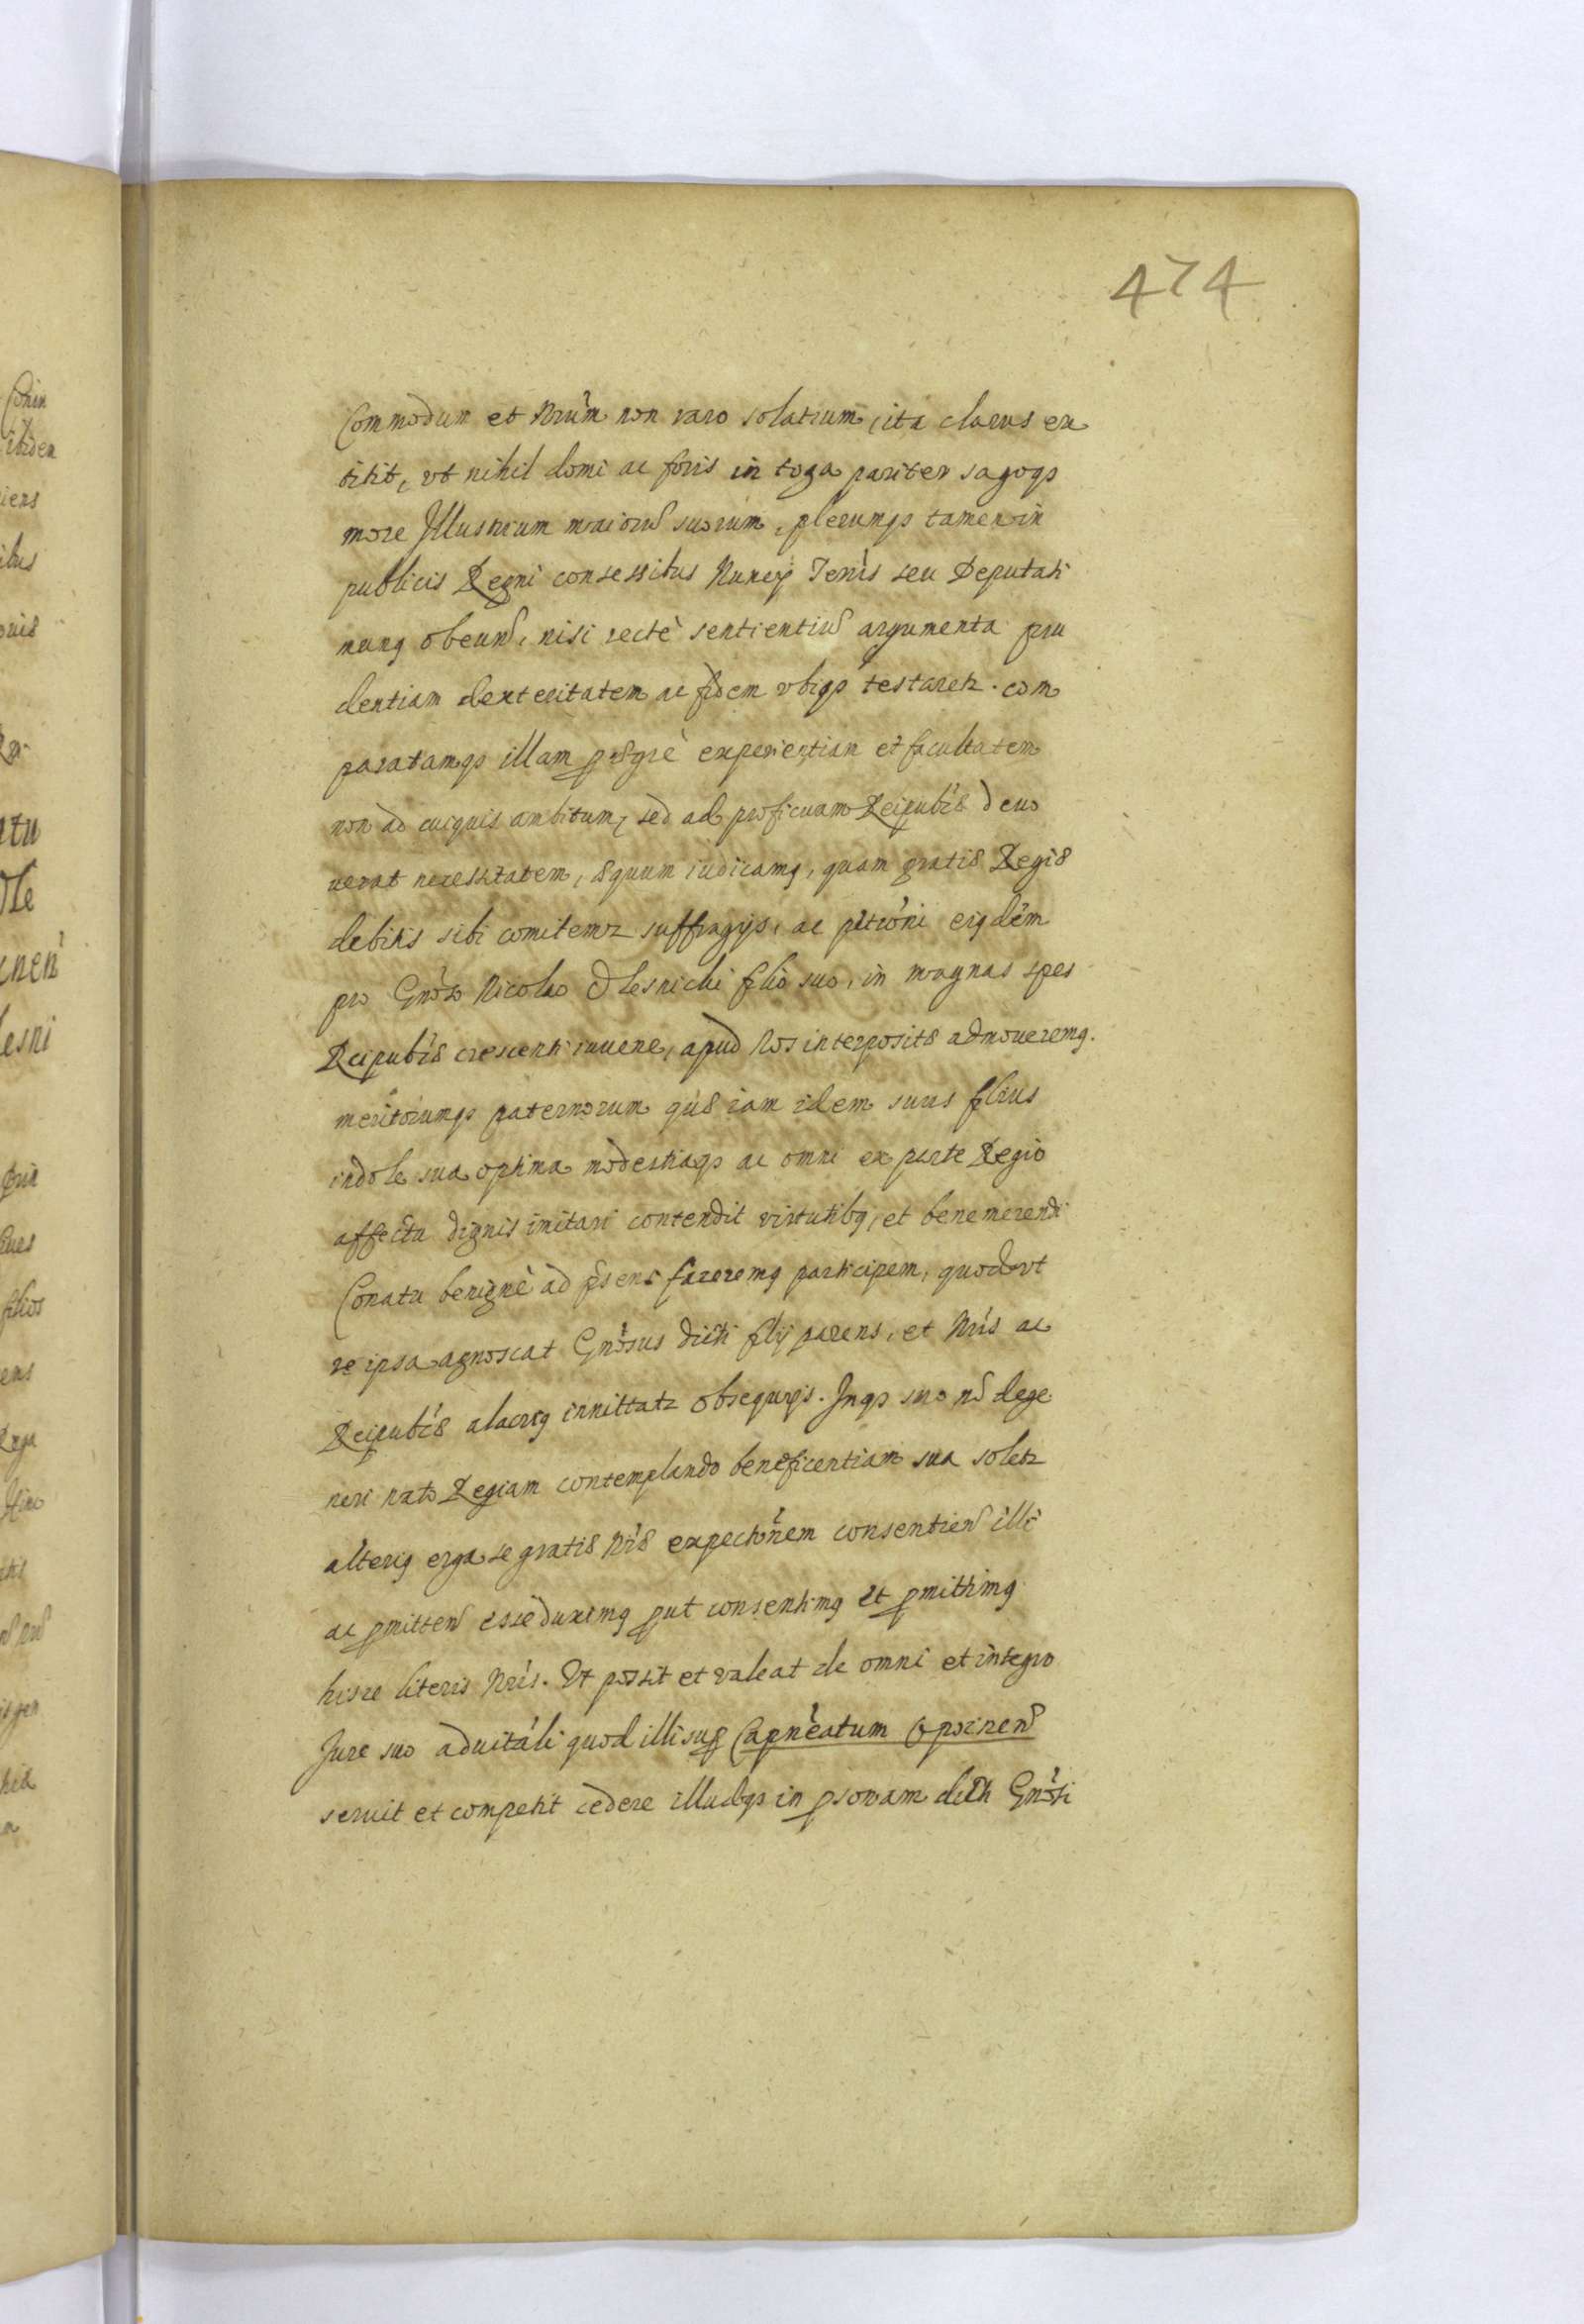 474
Commodum et Nrum non raro solatium, ita clarus ex
titit, vt nihil domi ac foris in toga pariter sagoqs
more Illustrium maioru suorum, plerumqs tamen in
publicis Regni consessibus Nuncy Terris seu Deputati
nung obeun, nisi rectè sentientiu argumenta pru
dentiam dexteritatem ac fidem vbiqs testaretz. com
paratamqs illam experientiam et facultatem
non ad cuiquis ambitum, sed ad proficuam Reipubcæ deuo
uerat necessitatem, æquum iudicamq, quam gratiæ Regiæ
debitis sibi comitemur suffragijs, ac petitioni eiqdem
pro Gnoso Nicolao Olesnicki filio suo, in magnas spes
Reipubcæ crescenti iuuene, apud Nos interpositæ admoueremq.
meritorumqs paternorum quæ iam idem suus filius
indole sua optima modestiaqs ac omni ex parte Regio
affectu dignis imitari contendit virtutibq, et benemerendi
Conatu benignè ad psens faceremq participem, quod vt
re ipsa agnoscat Gnosus dicti filij parens, et Nris ac
Reipubcæ alacriq innittatz obsequijs. Inqs suo no dege
neri nato Regiam contemplando beneficentiam sua soletz
alteriq erga se gratiæ Nræ expectonem consentien illi
ac pmitten esse duximq put consentimq et pmittimq
hisce literis Nris. Vt possit et valeat de omni et integro
Jure suo aduitali quod illi sup Capneatum Opocnen
seruit et competit cedere illudqs in psonam dicti Gnosi